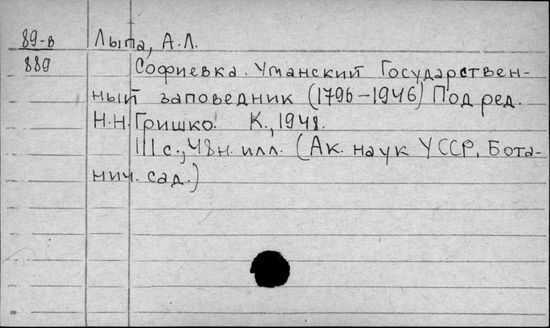 89-в Лыпа, А.Л.
889 Софиевка. Уманский Государствен-
ный заповедник (1796-1946) Под ред.
Н.Н. Гришко. К., 1948.
111 с., 48 н. илл. (Ак. наук УССР. Бота-
нич. сад.)